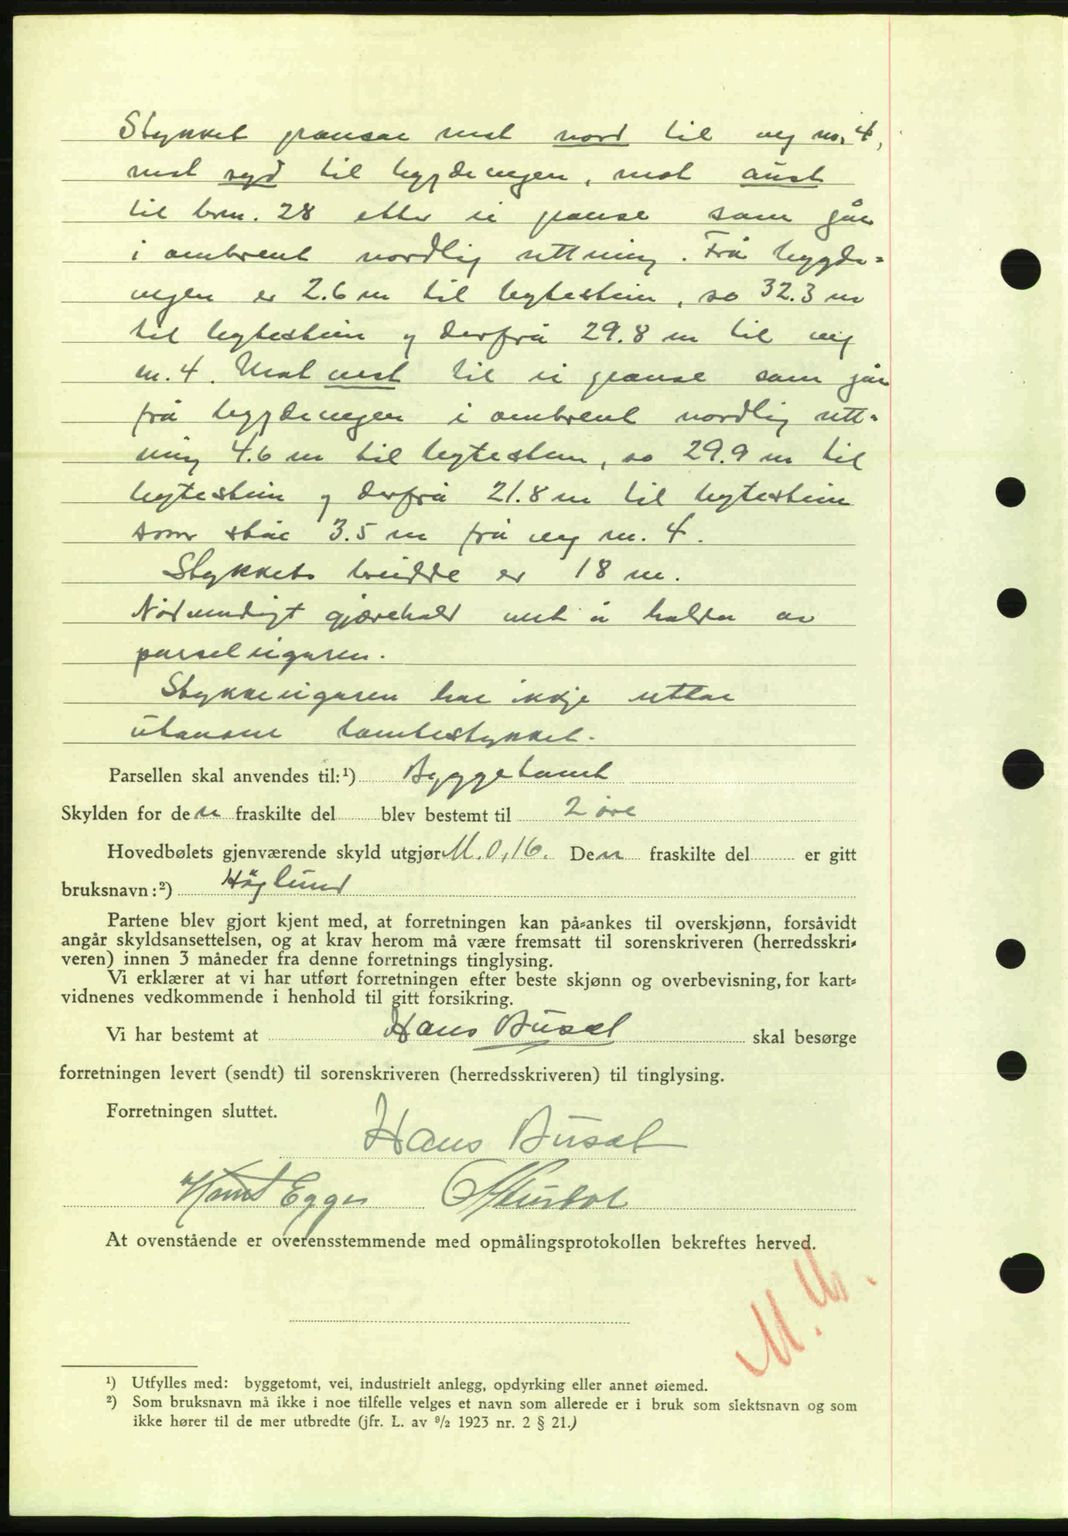 Stykket grensar mot nord til veg nr. 4,
mot syd til bygdevegen, mot aust
til brn. 28 etter ei grense som går
i ombrent nordlig rettning. Frå bygde-
vegen er 2.6 m til bytestein, so 32.3 m
til bytestein og derfrå 29.8 m til veg
nr. 4. Mot vest til ei grense som går
frå bygdevegen i ombrent nordlig rett-
ning 4.6 m til bytestein, so 29.9 m til
bytestein og derfrå 21.8 m til bytestein
som står 3.5 m frå veg nr. 4.
Stykkets breidde er 18 m.
Nødvendigt gjærehald vert å halda av
parseleigaren.
Stykkeeigaren har ikkje rettar
utanom tomtestykket.
Parsellen skal anvendes til:¹) Byggetomt
Skylden for den fraskilte del blev bestemt til 2 øre
Hovedbølets gjenværende skyld utgjør M. 0,16. Den fraskilte del er gitt
bruksnavn:²) Höglund
Partene blev gjort kjent med, at forretningen kan på-ankes til overskjønn, forsåvidt
angår skyldsansettelsen, og at krav herom må være fremsatt til sorenskriveren (herredsskri-
veren) innen 3 måneder fra denne forretnings tinglysing.
Vi erklærer at vi har utført forretningen efter beste skjønn og overbevisning, for kart-
vidnenes vedkommende i henhold til gitt forsikring.
Vi har bestemt at Hans Busæt skal besørge
forretningen levert (sendt) til sorenskriveren (herredsskriveren) til tinglysing.
Forretningen sluttet.
Hans Busæt
Knut Egges
At ovenstående er overensstemmende med opmålingsprotokollen bekreftes herved.
¹) Utfylles med: byggetomt, vei, industrielt anlegg, opdyrking eller annet øiemed.
²) Som bruksnavn må ikke i noe tilfelle velges et navn som allerede er i bruk som slektsnavn og som
ikke hører til de mer utbredte (jfr. L. av ⁹/₂ 1923 nr. 2 § 21.)